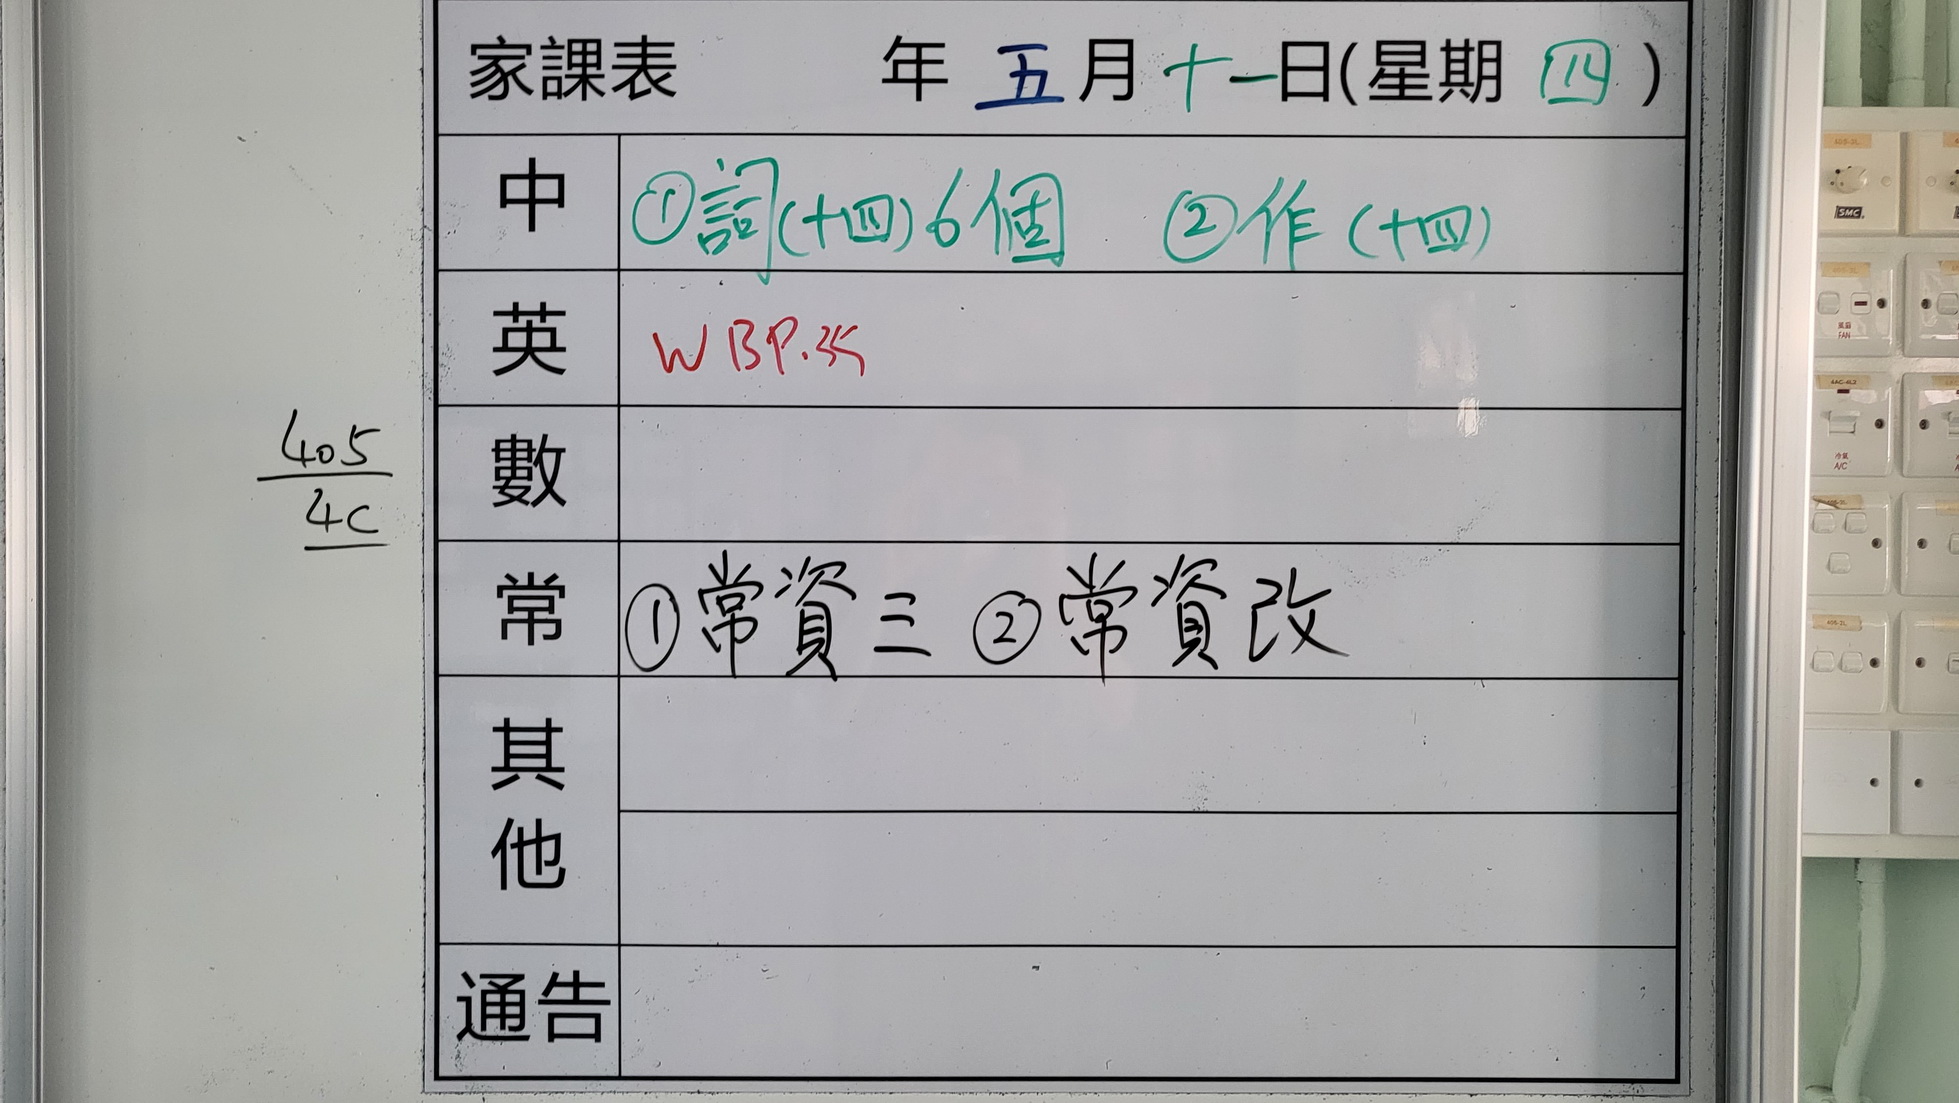 家課表 年 五月十一日(星期四)
中 ①詞(十四)6個 ②作(十四)
英 WBP.35
數
405
4C
常 ①常資三 ②常資改
其他
通告
SMC
風扇
FAN
冷氣
A/C